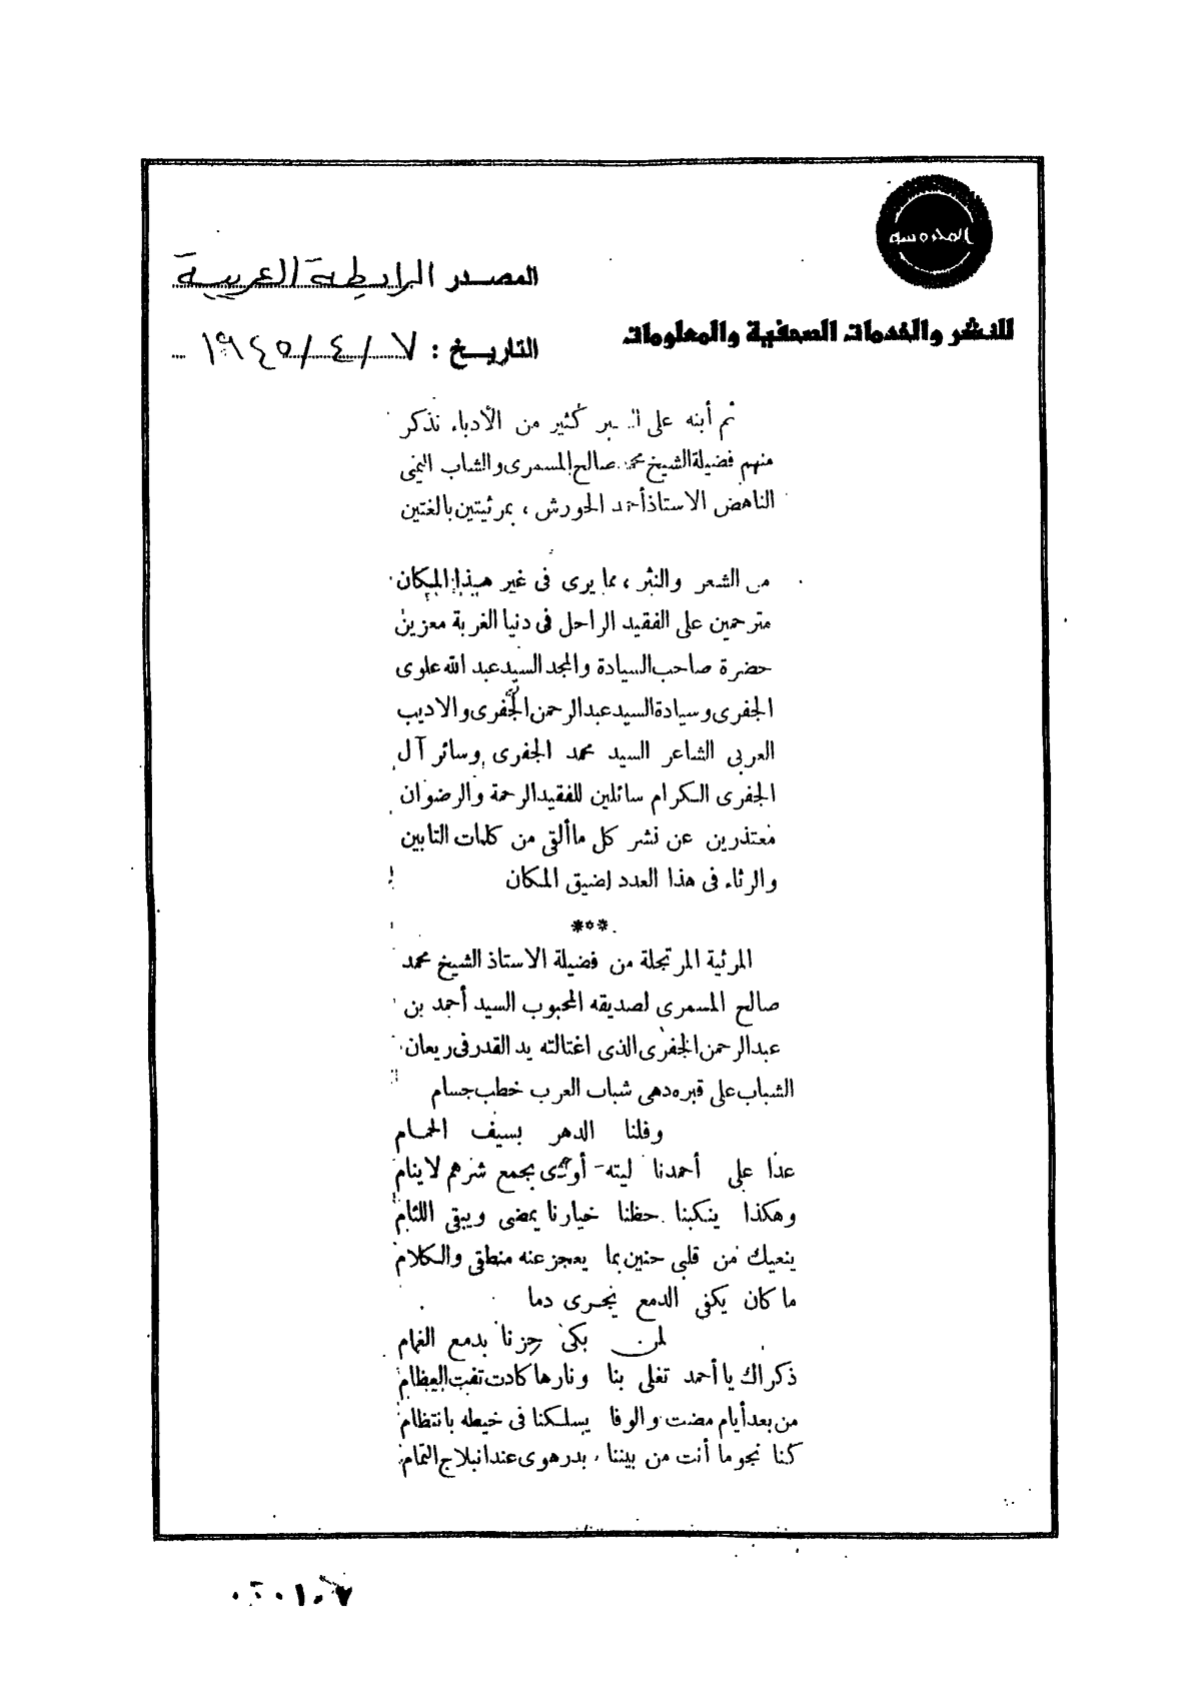 المحروسة
للنشر والخدمات الصحفية والمعلومات
المصدر الرابطة العربية
التاريخ : ٧ / ٤ / ١٩٤٥
ثم أبنه على كثير من الأدباء نذكر
منهم فضيلة الشيخ محمد صالح المسمرى والشاب اليمنى
الناهض الاستاذ أحمد الحورش ، بمرثيتين بالغتين
من الشعر والنثر ، مما يرى فى غير هذا المكان
مترحمين على الفقيد الراحل فى دنيا الغربة معزين
حضرة صاحب السيادة والمجد السيد عبد الله علوى
الجفرى وسيادة السيد عبد الرحمن الجفرى والاديب
العربى الشاعر السيد محمد الجفرى وسائر آل
الجفرى الكرام سائلين للفقيد الرحمة والرضوان
معتذرين عن نشر كل ما ألقى من كلمات التابين
والرثاء فى هذا العدد لضيق المكان
***
المرثية المرتجلة من فضيلة الاستاذ الشيخ محمد
صالح المسمرى لصديقه المحبوب السيد أحمد بن
عبد الرحمن الجفرى الذى اغتالته يد القدر فى ريعان
الشباب على قبره دهى شباب العرب خطب جسام
وفلنا الدهر بسيف الحمام
عدا على أحمدنا ليته أودى بجمع شرهم لا ينام
وهكذا ينكبنا حظنا خيارنا يمضى ويبقى اللئام
ينعيك من قلبى حنين بما يعجز عنه منطقى والكلام
ما كان يكفى الدمع يجرى دما
لمن بكى حزنا بدمع الغمام
ذكراك يا أحمد تغلى بنا ونارها كادت تفت العظام
من بعد أيام مضت والوفا يسلكنا فى خيطه بانتظام
كنا نجوما أنت من بيننا ، بدر هوى عند انبلاج التمام